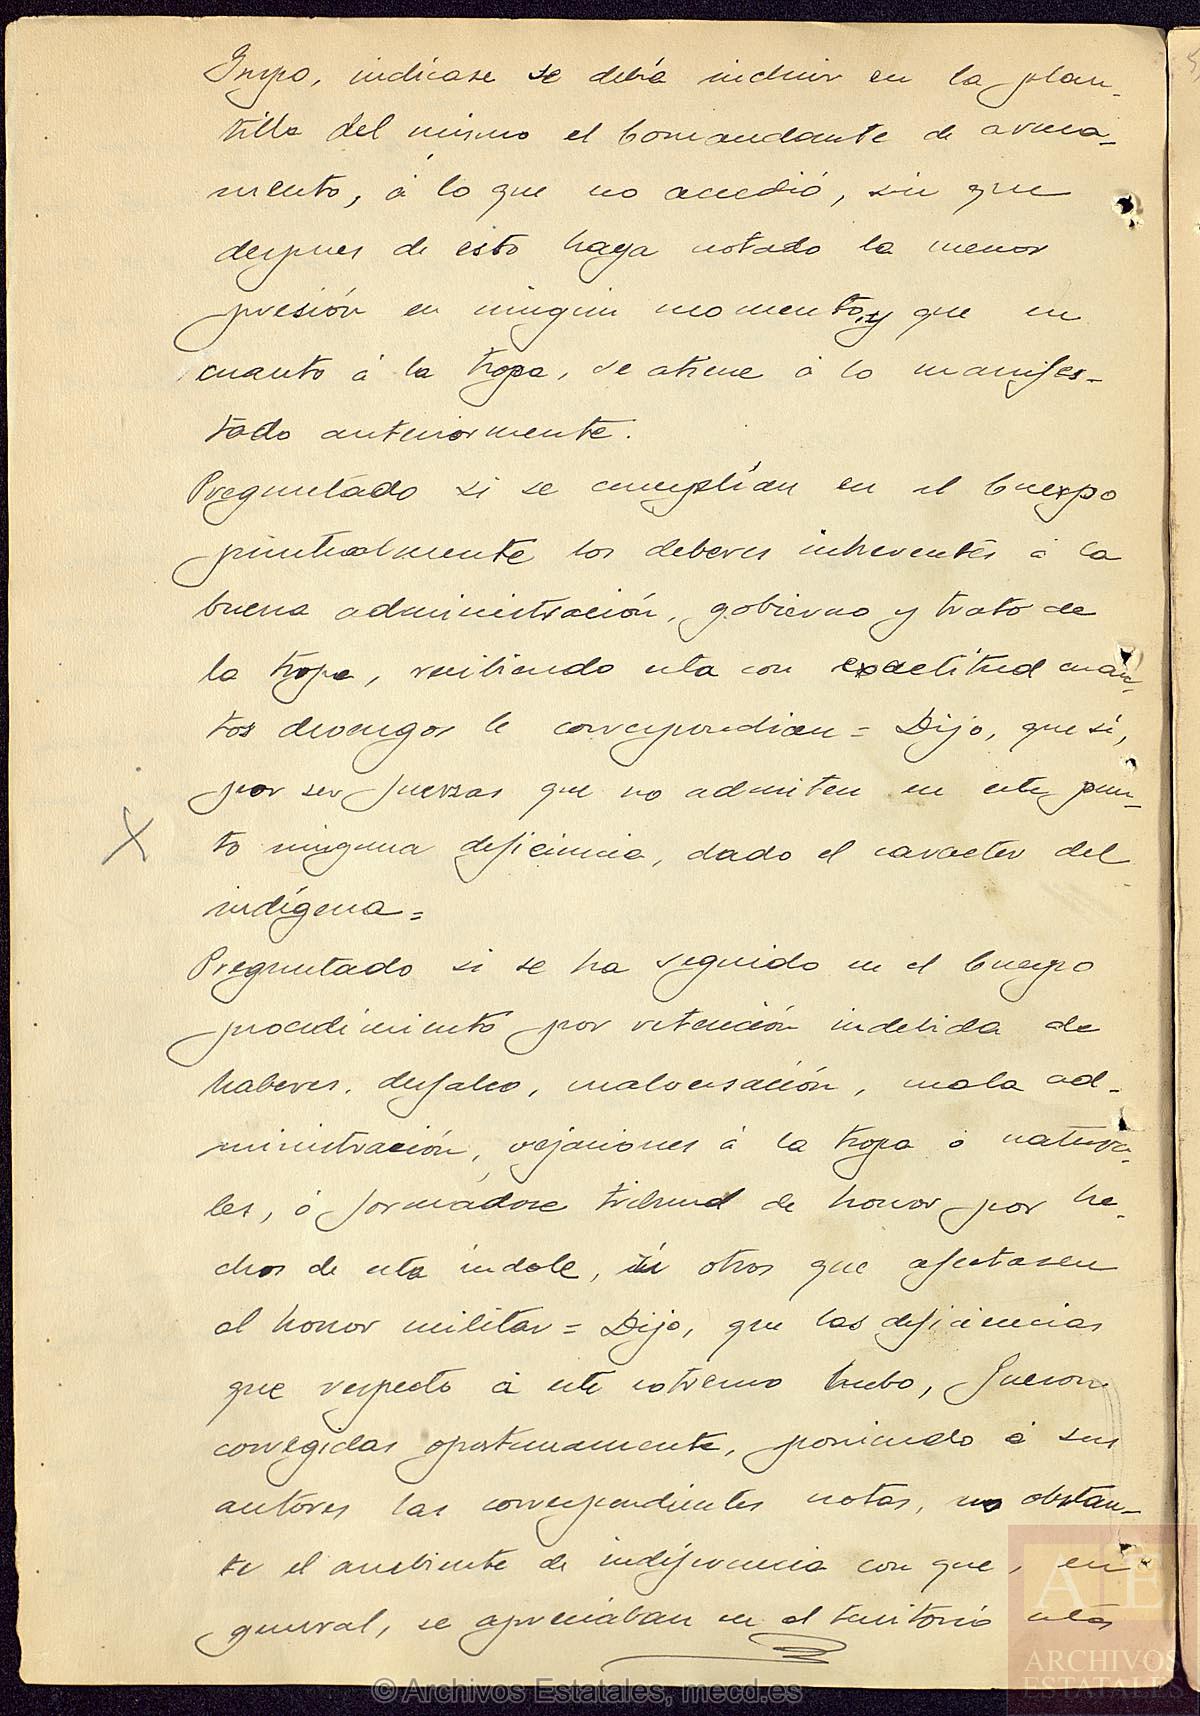 Grupo, indicase se debía incluir en la plan-
tilla del mismo el Comandante de arma-
mento, á lo que no accedió, sin que
despues de esto haya notado la menor
presión en ningun momento, y que en
cuanto á la tropa, se atiene á lo manifes-
tado anteriormente.
Preguntado si se cumplían en el Cuerpo
puntualmente los deberes inherentes á la
buena administración, gobierno y trato de
la tropa, recibiendo esta con exactitud cuan-
tos devengos le correspondian = Dijo, que sí,
por ser fuerzas que no admiten en este pun-
to ninguna deficiencia, dado el caracter del
indígena =
Preguntado si se ha seguido en el Cuerpo
procedimiento por retención indebida de
haberes, desfalco, malversación, mala ad-
ministración, vejaciones á la tropa o natura-
les, ó formadose tribunal de honor por he-
chos de esta indole, ú otros que afectasen
al honor militar = Dijo, que las deficiencias
que respecto á este extremo hubo, fueron
corregidas oportunamente, poniendo á sus
autores las correspondientes notas, no obstan-
te el ambiente de indiferencia con que, en
general, se apreciaban en el territorio estas
© Archivos Estatales, mecd.es
AE
ARCHIVOS
ESTATALES